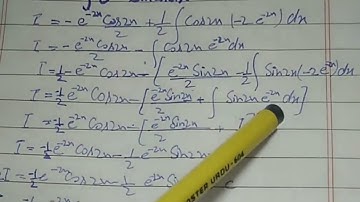 I = -e^-2x Cos2x/2 + 1/2 ∫ Cos2x (-2 e^-2x) dx
I = -e^-2x Cos2x/2 - ∫ Cos2x e^-2x dx
I = -1/2 e^-2x Cos2x - [e^-2x Sin2x/2 - 1/2 ∫ Sin2x (-2 e^-2x) dx]
I = -1/2 e^-2x Cos2x - [e^-2x Sin2x/2 + ∫ Sin2x e^-2x dx]
I = -1/2 e^-2x Cos2x - [e^-2x Sin2x/2 + I
I = -1/2 e^-2x Cos2x - 1/2 e^-2x Sin2x
I = -1/2 e^-2x Cos2x - 1/2 e^-2x Sin2x